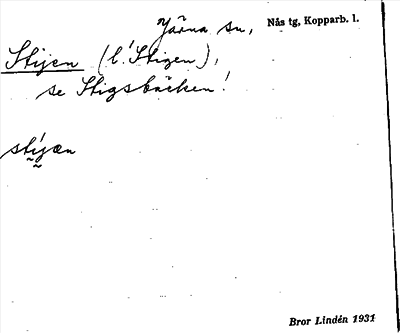 Järna sn, Nås tg, Kopparb. l.
Stijen (l. Stigen),
se Stigsbäcken!
stíjæn
Bror Lindén 1931